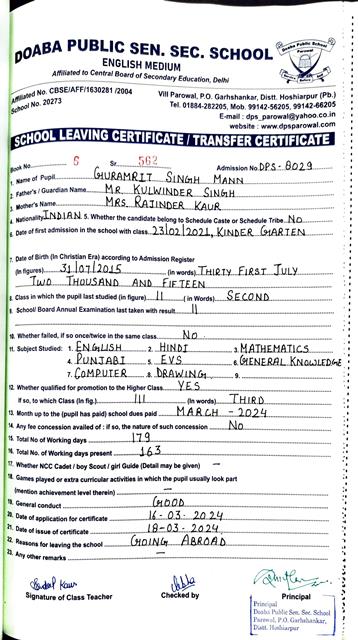 DOABA PUBLIC SEN. SEC. SCHOOL
ENGLISH MEDIUM
Affiliated to Central Board of Secondary Education, Delhi
Affiliated No. CBSE/AFF/1630281 /2004
School No. 20273
Vill Parowal, P.O. Garhshankar, Distt. Hoshiarpur (Pb.)
Tel. 01884-282205, Mob. 99142-56205, 99142-66205
E-mail : dps_parowal@yahoo.co.in
website : www.dpsparowal.com
SCHOOL LEAVING CERTIFICATE / TRANSFER CERTIFICATE
Book No. 6 Sr. 562 Admission No DPS-8029
1. Name of Pupil GURAMRIT SINGH MANN
2. Father's / Guardian Name MR. KULWINDER SINGH
3. Mother's Name MRS. RAJINDER KAUR
4. Nationality INDIAN 5. Whether the candidate belong to Schedule Caste or Schedule Tribe. NO
6. Date of first admission in the school with class. 23/02/2021, KINDER GARTEN
7. Date of Birth (In Christian Era) according to Admission Register
(In figures) 31/07/2015 (in words) THIRTY FIRST JULY
TWO THOUSAND AND FIFTEEN
8. Class in which the pupil last studied (in figure) II (in Words) SECOND
9. School/ Board Annual Examination last taken with result II
10. Whether failed, if so once/twice in the same class NO
11. Subject Studied : 1. ENGLISH 2. HINDI 3. MATHEMATICS
4. PUNJABI 5. EVS 6. GENERAL KNOWLEDGE
7. COMPUTER 8. DRAWING 9.
12. Whether qualified for promotion to the Higher Class YES
If so, to which Class (in fig.) III (In words) THIRD
13. Month up to the (pupil has paid) school dues paid MARCH - 2024
14. Any fee concession availed of : if so, the nature of such concession NO
15. Total No of Working days 179
16. Total No. of Working days present 163
17. Whether NCC Cadet / boy Scout / girl Guide (Detail may be given) -
18. Games played or extra curricular activities in which the pupil usually look part
(mention achievement level therein) -
19. General conduct GOOD
20. Date of application for certificate 16-03-2024
21. Date of issue of certificate 18-03-2024
22. Reasons for leaving the school GOING ABROAD
23. Any other remarks -
Signature of Class Teacher Checked by Principal
Principal
Doaba Public Sen. Sec. School
Parowal, P.O. Garhshankar,
Distt. Hoshiarpur